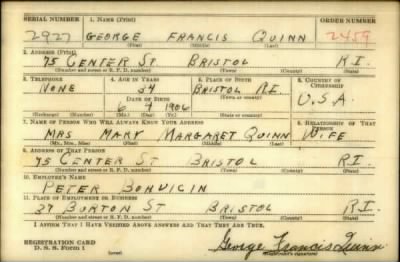 SERIAL NUMBER 1. NAME (Print) ORDER NUMBER
2927 GEORGE FRANCIS QUINN 2459
(First) (Middle) (Last)
2. ADDRESS (Print)
75 CENTER ST. BRISTOL R.I.
(Number and street or R. F. D. number) (Town) (County) (State)
3. TELEPHONE 4. AGE IN YEARS 5. PLACE OF BIRTH 6. COUNTRY OF CITIZENSHIP
NONE 34 BRISTOL R.I.
DATE OF BIRTH (Town or county) U.S.A.
6 9 1906
(Exchange) (Number) (Mo.) (Day) (Yr.) (State or country)
7. NAME OF PERSON WHO WILL ALWAYS KNOW YOUR ADDRESS 8. RELATIONSHIP OF THAT PERSON
MRS MARY MARGARET QUINN WIFE
(Mr., Mrs., Miss) (First) (Middle) (Last)
9. ADDRESS OF THAT PERSON
75 CENTER ST BRISTOL R.I.
(Number and street or R. F. D. number) (Town) (County) (State)
10. EMPLOYER'S NAME
PETER BONVICIN
11. PLACE OF EMPLOYMENT OR BUSINESS
37 BURTON ST BRISTOL R.I.
(Number and street or R. F. D. number) (Town) (County) (State)
I AFFIRM THAT I HAVE VERIFIED ABOVE ANSWERS AND THAT THEY ARE TRUE.
REGISTRATION CARD
D. S. S. Form 1 George Francis Quinn
(Registrant's signature)